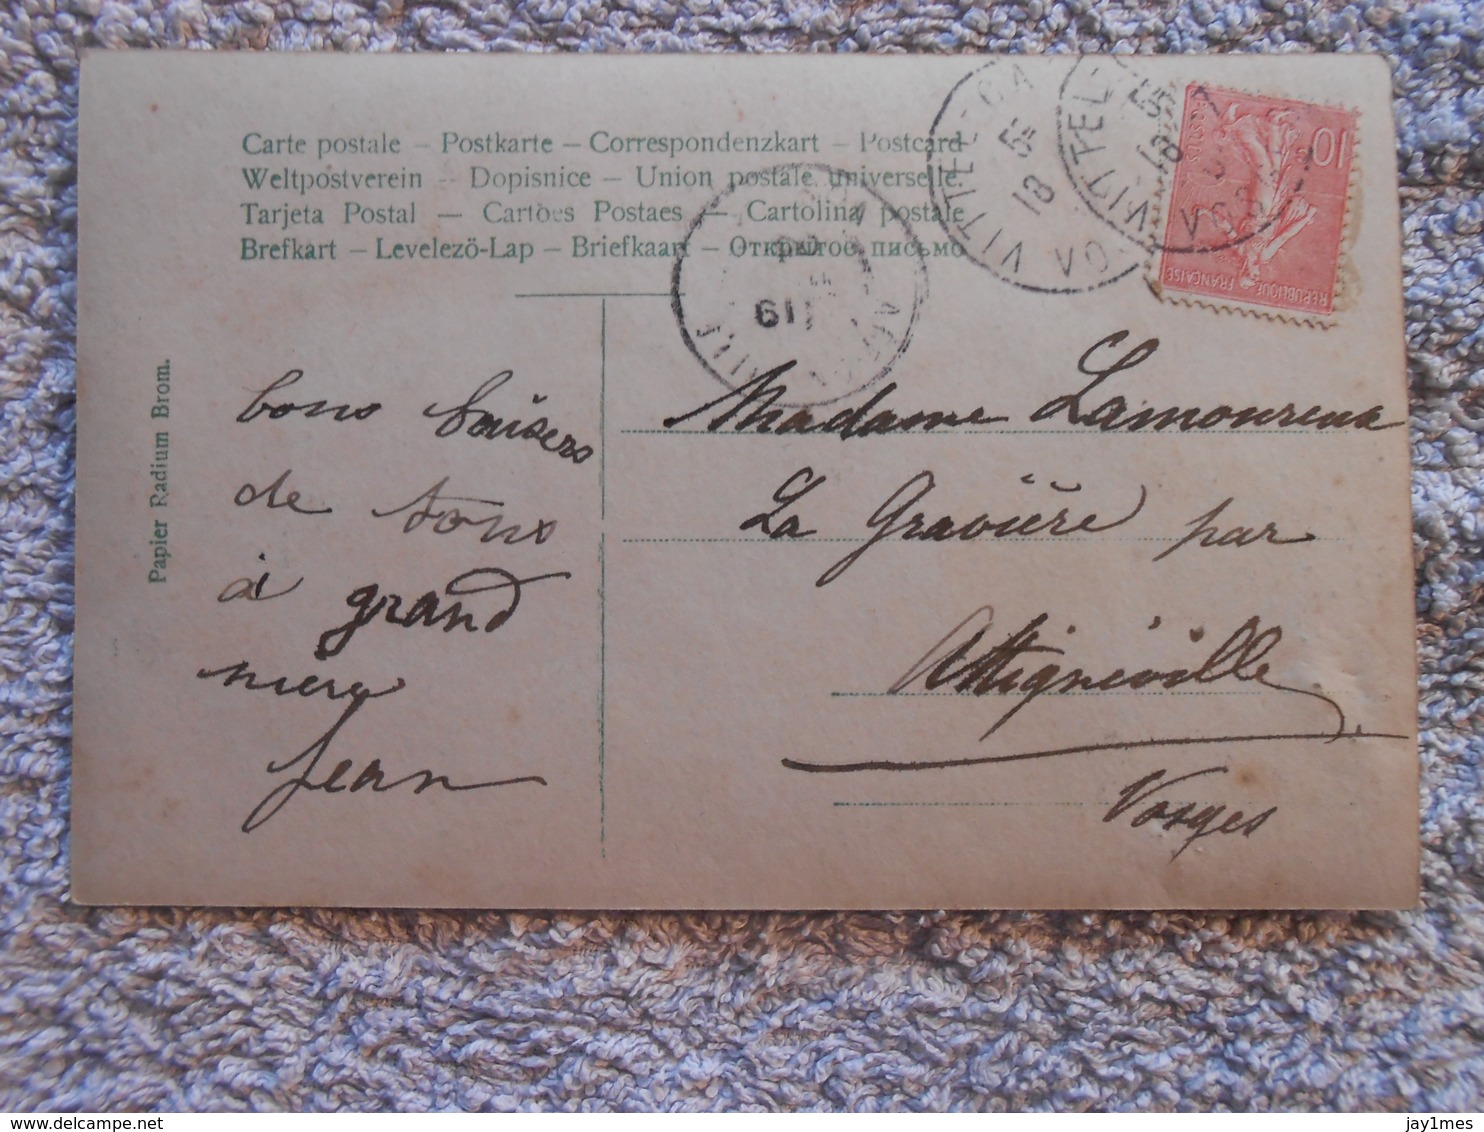 Carte postale – Postkarte – Correspondenzkart – Postcard
Weltpostverein – Dopisnice – Union postale universelle
Tarjeta Postal — Cartões Postaes — Cartolina postale
Brefkart – Levelezö-Lap – Briefkaart – Открытое письмо
Papier Radium Brom.
10
POSTES
REPUBLIQUE FRANÇAISE
VITTEL-GA
18
VITTEL
VOSGES
19
bons baisers
de tous
à grand
mère
Jean
Madame Lamoureux
La Gravière par
Attignéville
Vosges
delcampe.net
jay1mes